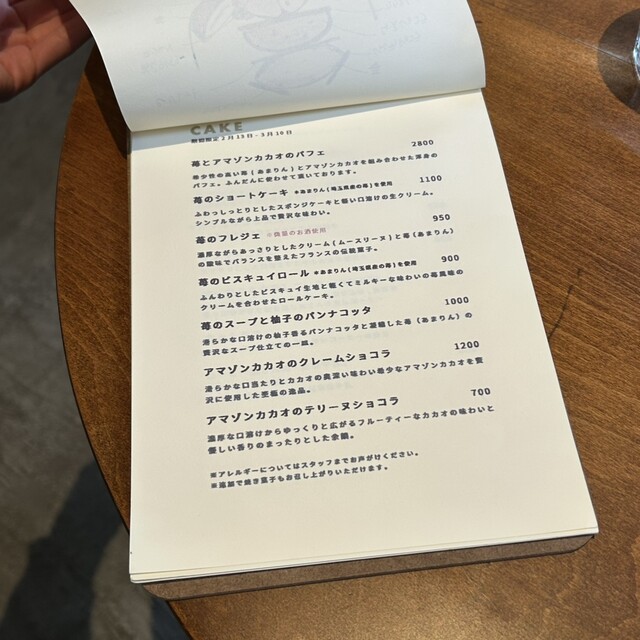 CAKE
期間限定 2月13日-3月16日
苺とアマゾンカカオのパフェ 2800
希少性の高い苺(あまりん)とアマゾンカカオを組み合わせた渾身の
パフェ。ふんだんに使わせて頂いております。
苺のショートケーキ ※あまりん(埼玉県産の苺)を使用 1100
ふわっしっとりとしたスポンジケーキと軽い口溶けの生クリーム。
シンプルながら上品で贅沢な味わい。
苺のフレジェ ※微量のお酒使用 950
濃厚ながらあっさりとしたクリーム(ムースリーヌ)と苺(あまりん)
の酸味でバランスを整えたフランスの伝統菓子。
苺のビスキュイロール ※あまりん(埼玉県産の苺)を使用 900
ふんわりとしたビスキュイ生地と軽くてミルキーな味わいの苺風味の
クリームを合わせたロールケーキ。
苺のスープと柚子のパンナコッタ 1000
滑らかな口溶けの柚子香るパンナコッタと凝縮した苺(あまりん)の
贅沢なスープ仕立ての一皿。
アマゾンカカオのクレームショコラ 1200
滑らかな口当たりとカカオの奥深い味わい希少なアマゾンカカオを贅
沢に使用した至極の逸品。
アマゾンカカオのテリーヌショコラ 700
濃厚な口溶けからゆっくりと広がるフルーティーなカカオの味わいと
優しい香りのまったりとした余韻。
※アレルギーについてはスタッフまでお声がけください。
※追加で焼き菓子もお召し上がりいただけます。